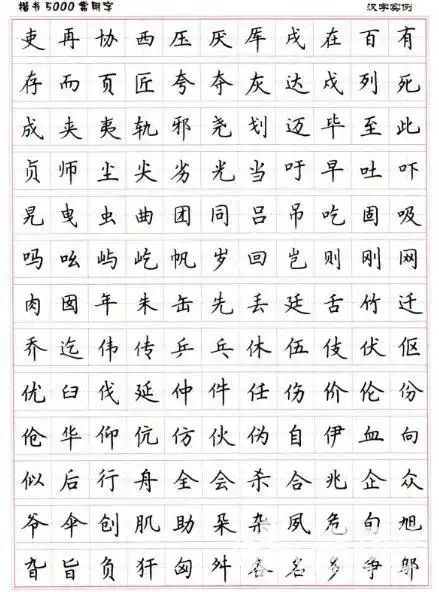 楷书5000常用字 汉字实例
吏再协西压厌厍戌在百有
存而页匠夸夺灰达戍列死
成夹夷轨邪尧划迈毕至此
贞师尘尖劣光当吁早吐吓
晃曳虫曲团同吕吊吃固吸
吗吆屿屹帆岁回岂则刚网
肉囡年朱缶先丢廷舌竹迁
乔迄伟传乒乓休伍伎伏伛
优臼伐延仲件任伤价伦份
伧华仰伉仿伙伪自伊血向
似后行舟全会杀合兆企众
爷伞创肌助朵杂夙危旬旭
旮旨负犴匈舛各名多争邬